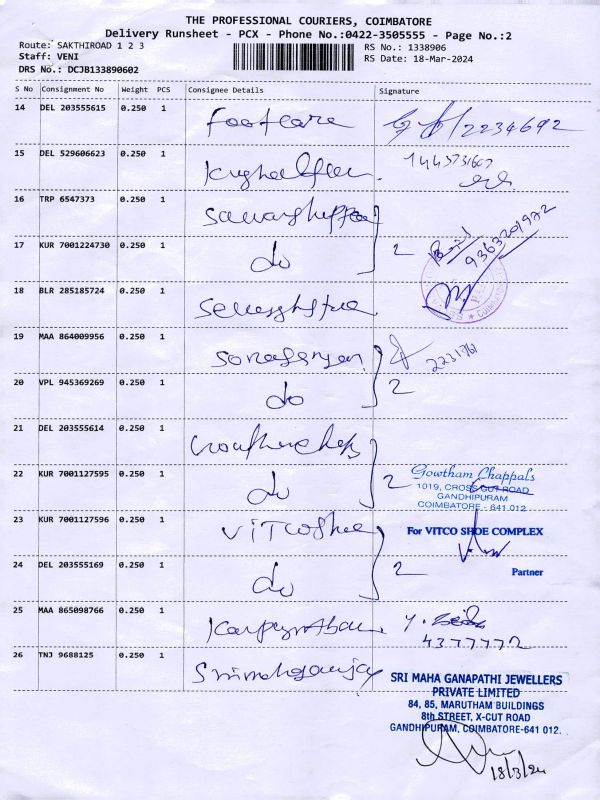 THE PROFESSIONAL COURIERS, COIMBATORE
Delivery Runsheet - PCX - Phone No.:0422-3505555 - Page No.:2
Route: SAKTHIROAD 1 2 3
Staff: VENI
DRS No.: DCJB133890602
RS No.: 1338906
RS Date: 18-Mar-2024
S No Consignment No Weight PCS Consignee Details Signature
14 DEL 203555615 0.250 1 footcare /2234692
15 DEL 529606623 0.250 1
16 TRP 6547373 0.250 1
9363201972
17 KUR 7001224730 0.250 1 do 2
COIMBATORE
18 BLR 285185724 0.250 1
19 MAA 864009956 0.250 1
20 VPL 945369269 0.250 1 do 2
21 DEL 203555614 0.250 1
22 KUR 7001127595 0.250 1 do 2
Gowtham Chappals
1019, CROSS CUT ROAD
GANDHIPURAM
COIMBATORE - 641 012.
23 KUR 7001127596 0.250 1 Vitcoshoe
For VITCO SHOE COMPLEX
Partner
24 DEL 203555169 0.250 1 do 2
25 MAA 865098766 0.250 1
4377772
26 TNJ 9688125 0.250 1
SRI MAHA GANAPATHI JEWELLERS
PRIVATE LIMITED
84, 85, MARUTHAM BUILDINGS
8th STREET, X-CUT ROAD
GANDHIPURAM, COIMBATORE-641 012.
18/3/24